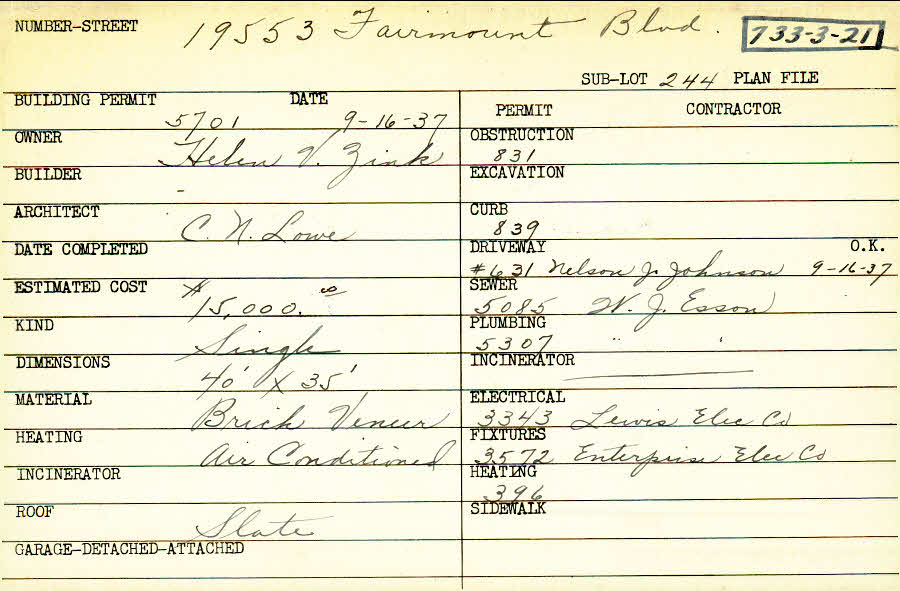 NUMBER-STREET 19553 Fairmount Blvd. 733-3-21
SUB-LOT 244 PLAN FILE
BUILDING PERMIT DATE
5701 9-16-37
OWNER
Helen V. Zink
BUILDER
-
ARCHITECT
C. N. Lowe
DATE COMPLETED
ESTIMATED COST $15,000.00
KIND
Single
DIMENSIONS
40' X 35'
MATERIAL
Brick Veneer
HEATING
Air Conditioned
INCINERATOR
ROOF
Slate
GARAGE-DETACHED-ATTACHED
PERMIT CONTRACTOR
OBSTRUCTION
831
EXCAVATION
CURB
839
DRIVEWAY O.K.
#631 Nelson J. Johnson 9-16-37
SEWER
5085 W. J. Esson
PLUMBING
5307 " "
INCINERATOR
ELECTRICAL
3343 Lewis Elec Co
FIXTURES
3572 Enterprise Elec Co
HEATING
396
SIDEWALK